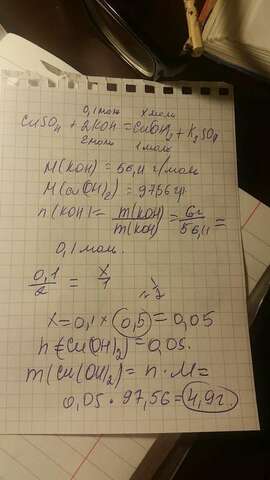 0,1 моль x моль
CuSO4 + 2KOH = Cu(OH)2 + K2SO4
2 моль 1 моль
M(KOH) = 56,11 г/моль
M(Cu(OH)2) = 97,56 г/
n(KOH) = m(KOH)/m(KOH) = 6г/56,11 =
0,1 моль.
0,1/2 = x/1
x = 0,1 × 0,5 = 0,05
n = Cu(OH)2 = 0,05.
m(Cu(OH)2) = n · M =
0,05 · 97,56 = 4,9г.